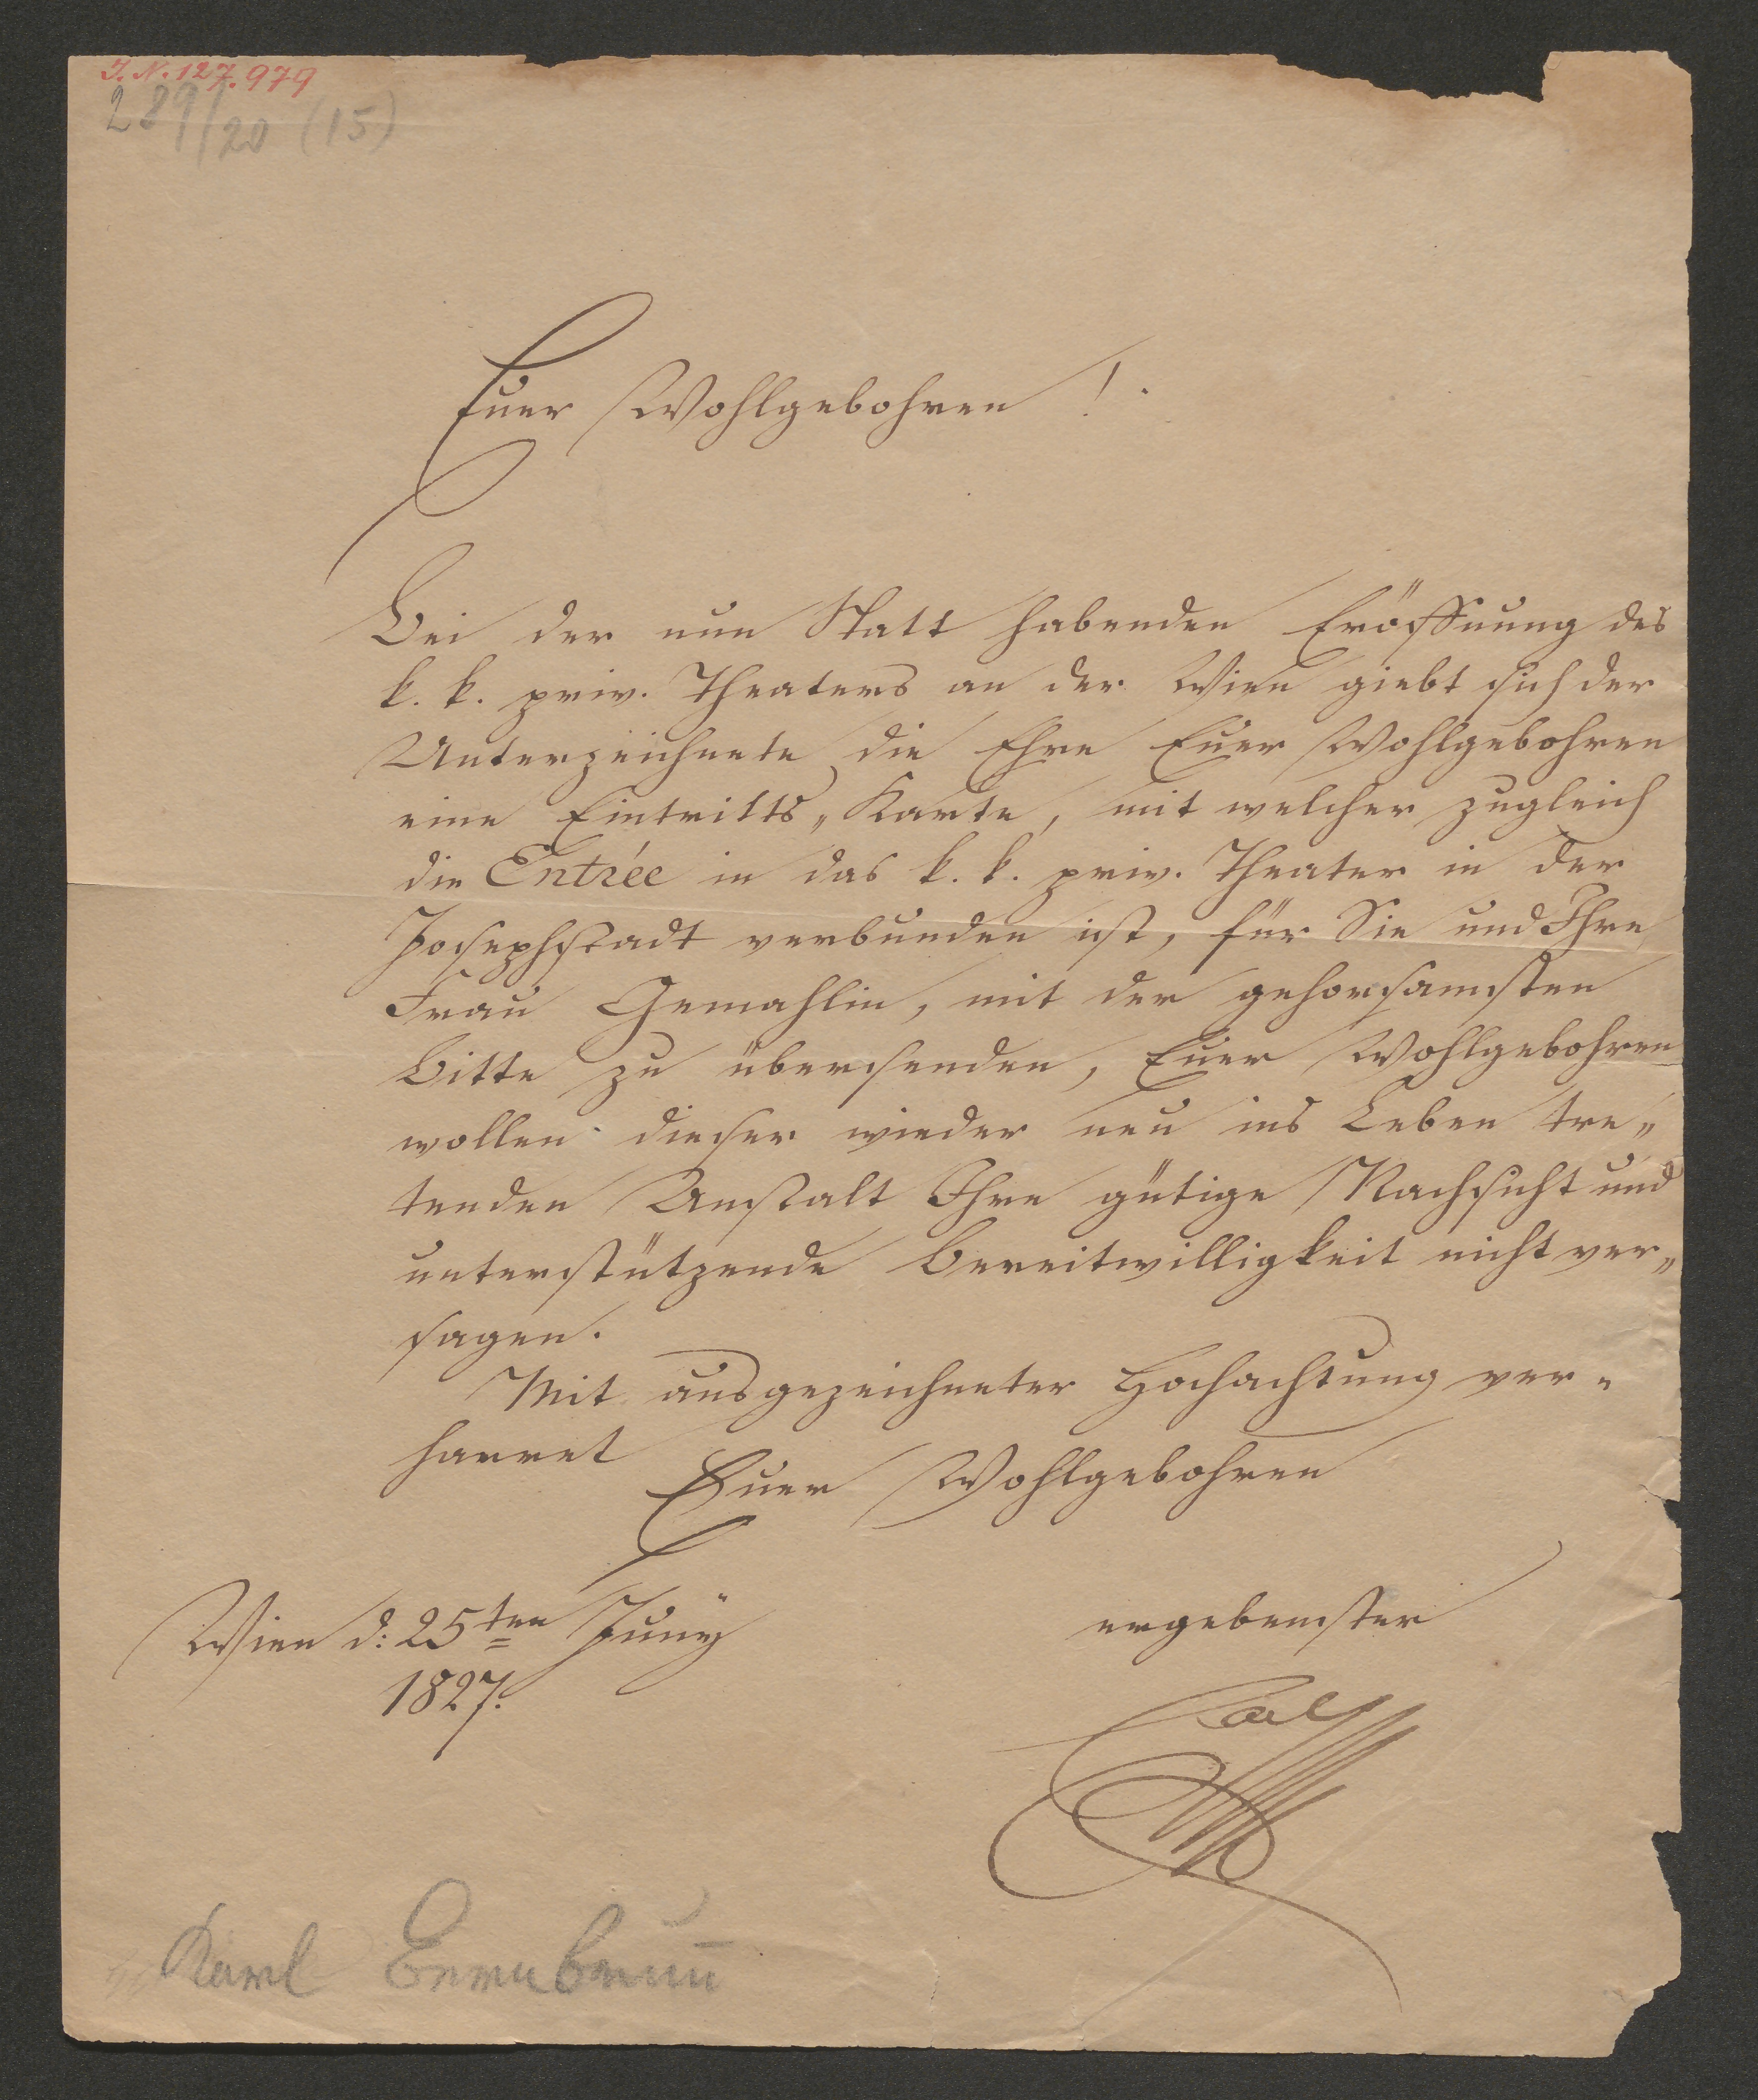 I. N. 127.979
289/20 (15)
Euer Wohlgebohren!
Bei der nun Statt habenden Eröffnung des
k. k. priv. Theaters an der Wien giebt sich der
Unterzeichnete die Ehre Euer Wohlgebohren
eine Eintritts„Karte, mit welcher zugleich
die Entrée in das k. k. priv. Theater in der
Josephstadt verbunden ist, für Sie und Ihre
Frau Gemahlin, mit der gehorsamsten
Bitte zu übersenden, Euer Wohlgebohren
wollen dieser wieder neu ins Leben tre„
tenden Anstalt Ihre gütige Nachsicht und
unterstützende Bereitwilligkeit nicht ver„
sagen.
Mit ausgezeichneter Hochachtung ver„
harret
Euer Wohlgebohren
Wien d: 25ten Juny
1827.
ergebenster
Carl
Karl